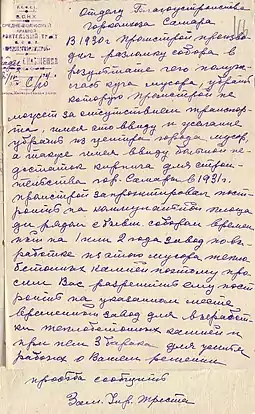 Отделу Благоустройства
Горкомхоза Самара.
В 1930 г. Промстрой произво-
дил разломку собора в
результате чего получи-
лась куча мусора, убрать
которую Промстрой не
может за отсутствием транспор-
та, имея это ввиду и желание
убрать из центра города мусор,
а также имея ввиду большой не-
достаток кирпича для строи-
тельства гор. Самары в 1931 г.
Промстрой запроектировал пост-
роить на коммунальной площа-
ди рядом с бывш. собором времен-
ный на 1 или 2 года завод по вы-
работке из этого мусора тепло-
бетонных камней поэтому про-
сим Вас разрешить ему пост-
роить на указанном месте
временный завод для выработ-
ки теплобетонных камней и
при нем 3 барака для
рабочих о Вашем решении
просьба сообщить
Зам. Упр. Треста